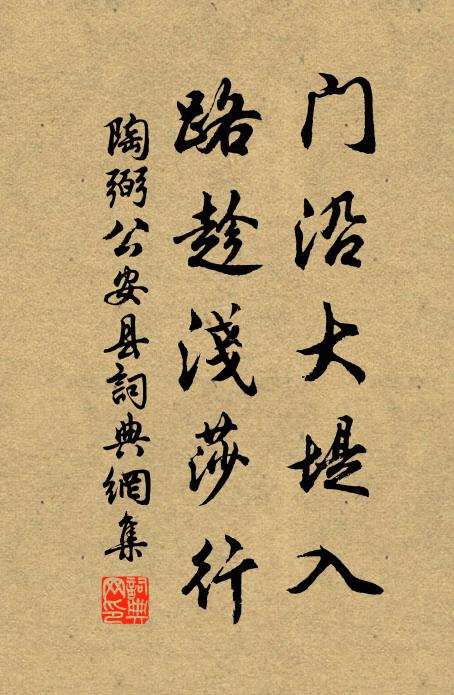 门沿大堤入
路趁淺莎行
陶弼公安县詞典網集
詞典网印